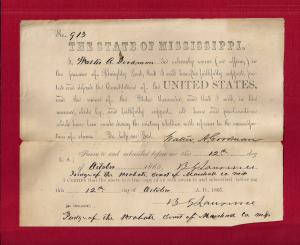 No 913
THE STATE OF MISSISSIPPI.
I, Walter A Goodman do solemnly swear (or affirm) in
the presence of Almighty God, that I will henceforth faithfully support, pro-
tect and defend the Constitution of the UNITED STATES,
and the union of the States thereunder, and that I will, in like manner,
abide by, and faithfully support all laws and proclamations
which have been made during the existing rebellion with reference to the emancipation
of slaves. So help me God.
Walter A Goodman
Sworn to and subscribed before me this 12th day
October 1865.
Judge of the Probate Court of Marshall co miss
I CERTIFY that the above is a true copy of an oath sworn to and subscribed before me
this 12th day of October A. D. 1865.
Judge of the Probate Court of Marshall co miss